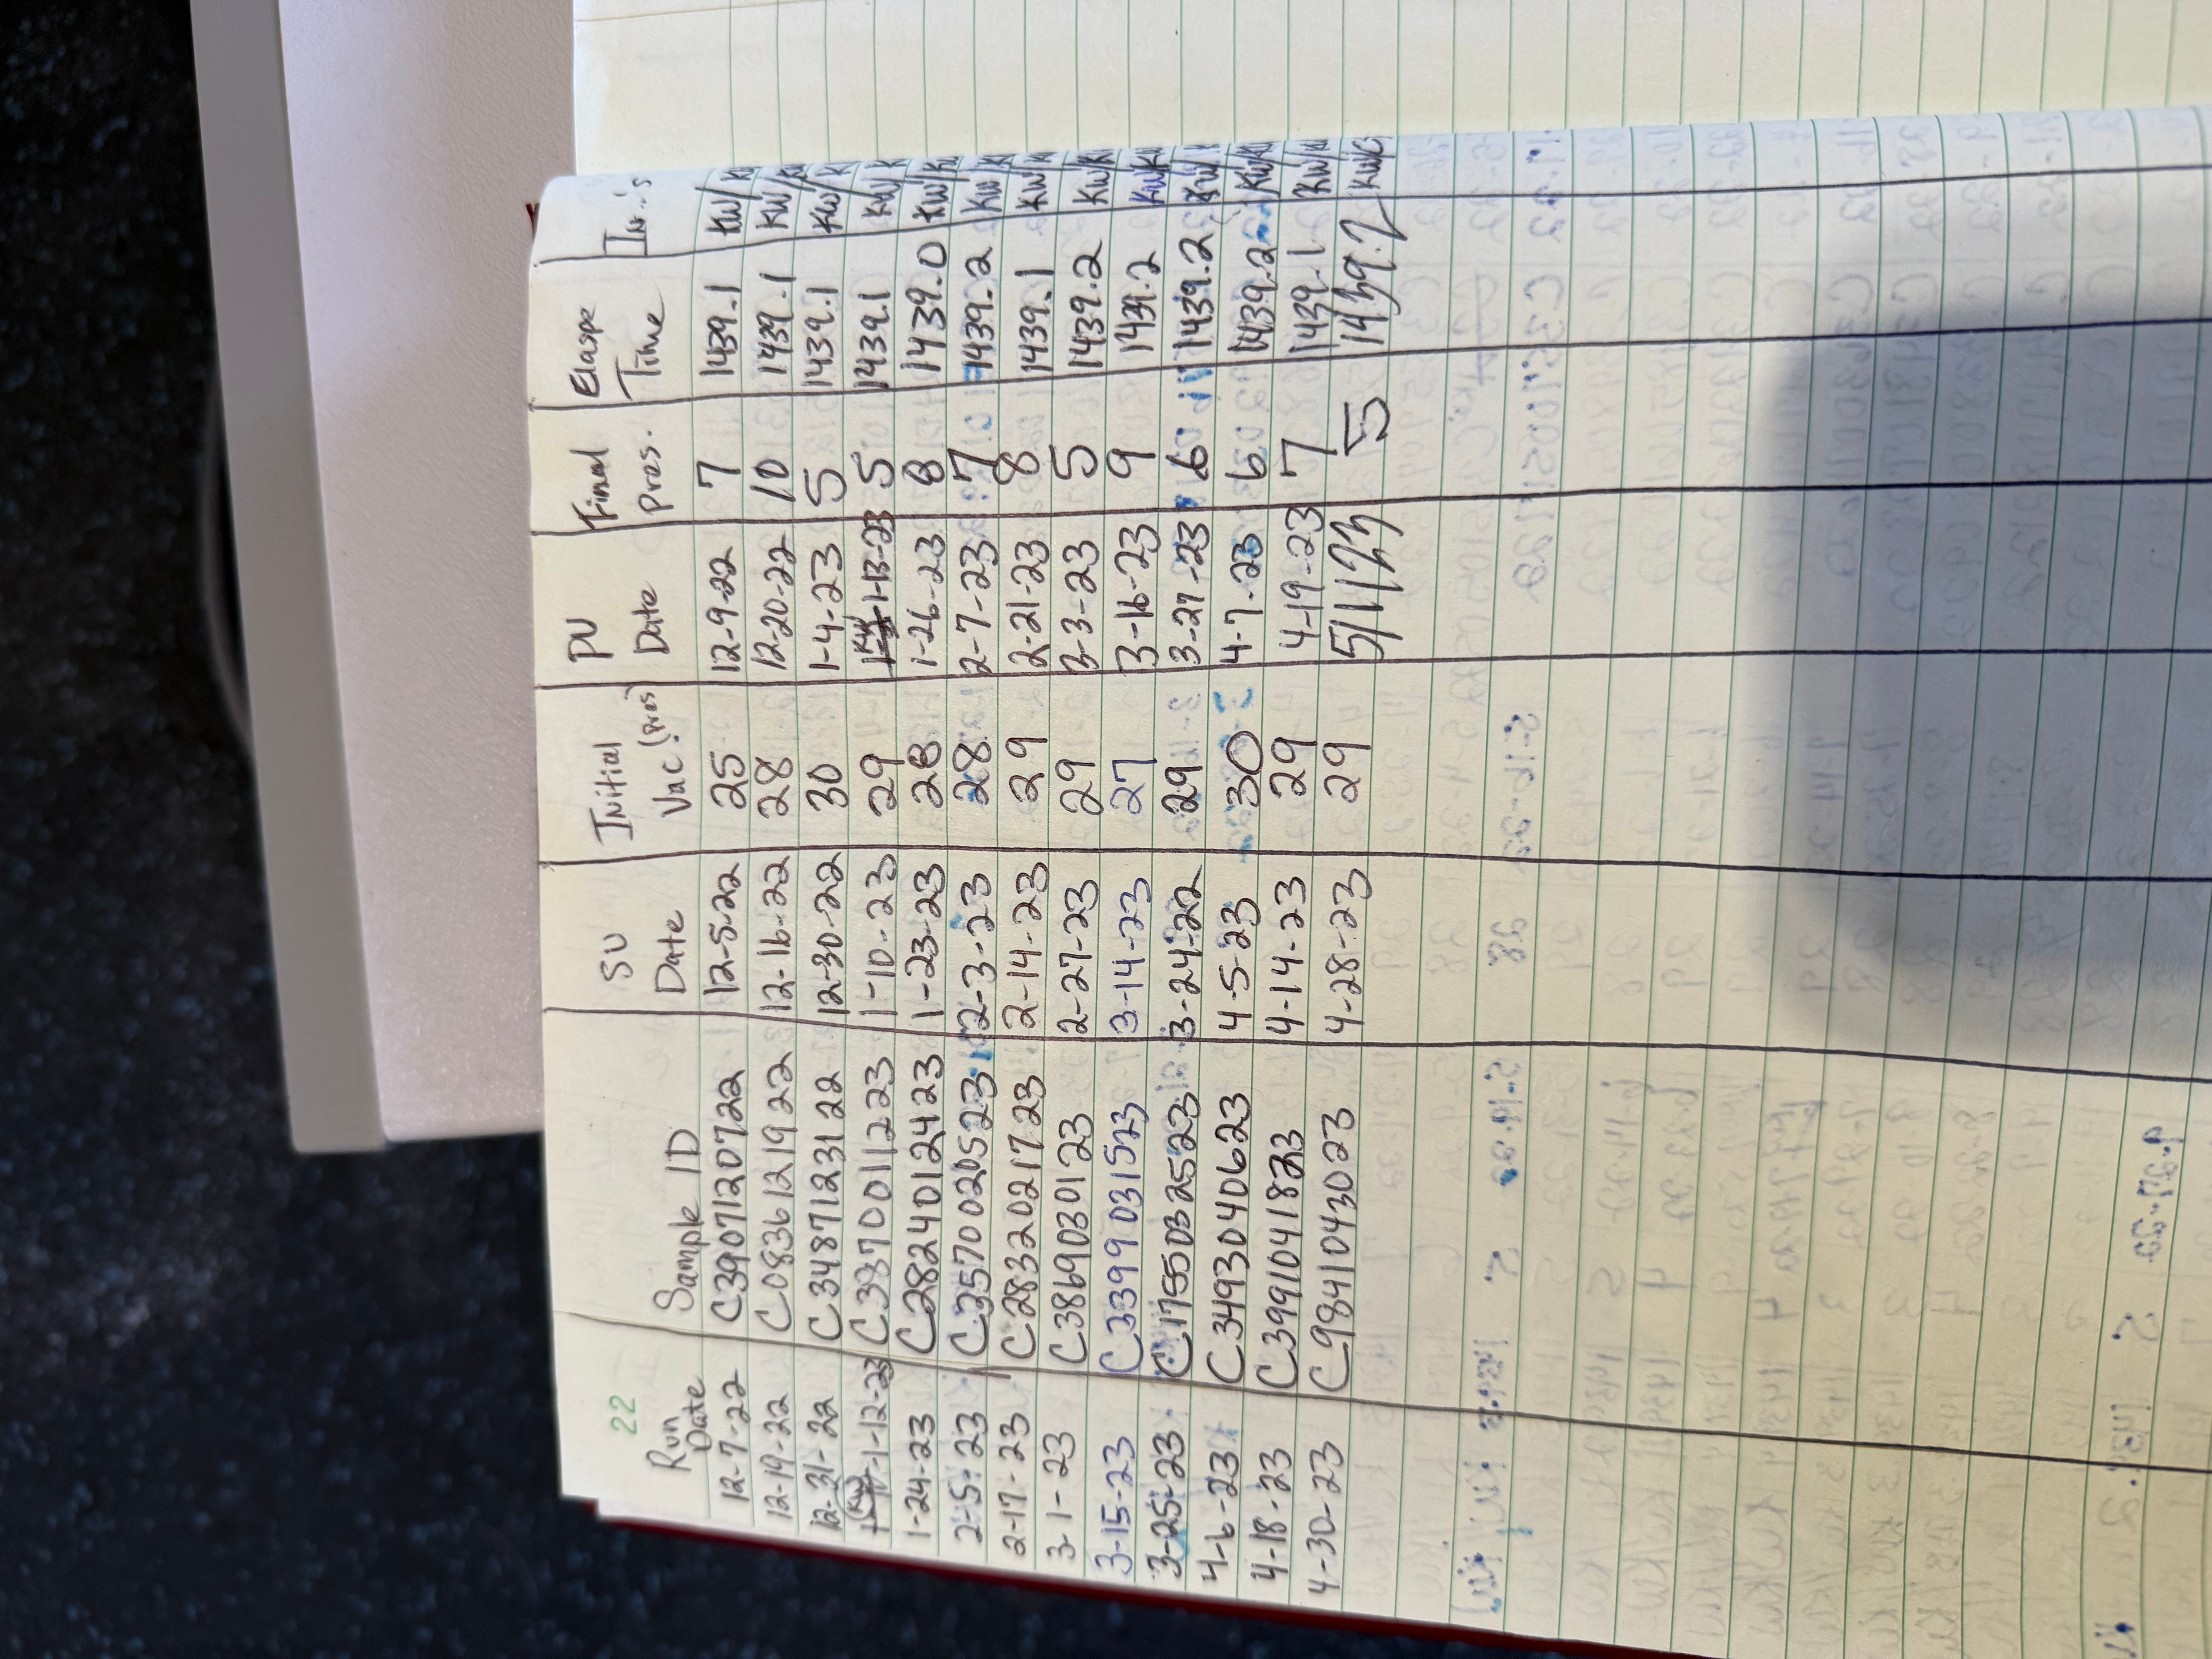 22
Run Date Sample ID SU Date Initial Vac (pres) PU Date Final Pres. Elaspe Time In.'s
12-7-22 C3907120722 12-5-22 25 12-9-22 7 1439.1 KW/
12-19-22 C0836121922 12-16-22 28 12-20-22 10 1439.1 KW/
12-31-22 C3487123122 12-30-22 30 1-4-23 5 1439.1 KW/
1-12-23 C3370011223 1-10-23 29 KW 1-13-23 5 1439.1 KW/
1-24-23 C2824012423 1-23-23 28 1-26-23 8 1439.0 KW/
2-5-23 C3570020523 2-3-23 28 2-7-23 7 1439.2 KW/
2-17-23 C2832021723 2-14-23 29 2-21-23 8 1439.1 KW/
3-1-23 C3869030123 2-27-23 29 3-3-23 5 1439.2 KW/
3-15-23 C3399031523 3-14-23 27 3-16-23 9 1439.2 KW/
3-25-23 C1755032523 3-24-22 29 3-27-23 6 1439.2 KW/
4-6-23 C3493040623 4-5-23 30 4-7-23 6 1439.2 KW/
4-18-23 C3991041823 4-14-23 29 4-19-23 7 1439.1 KW/
4-30-23 C9841043023 4-28-23 29 5/1/23 5 1439.2 KW/